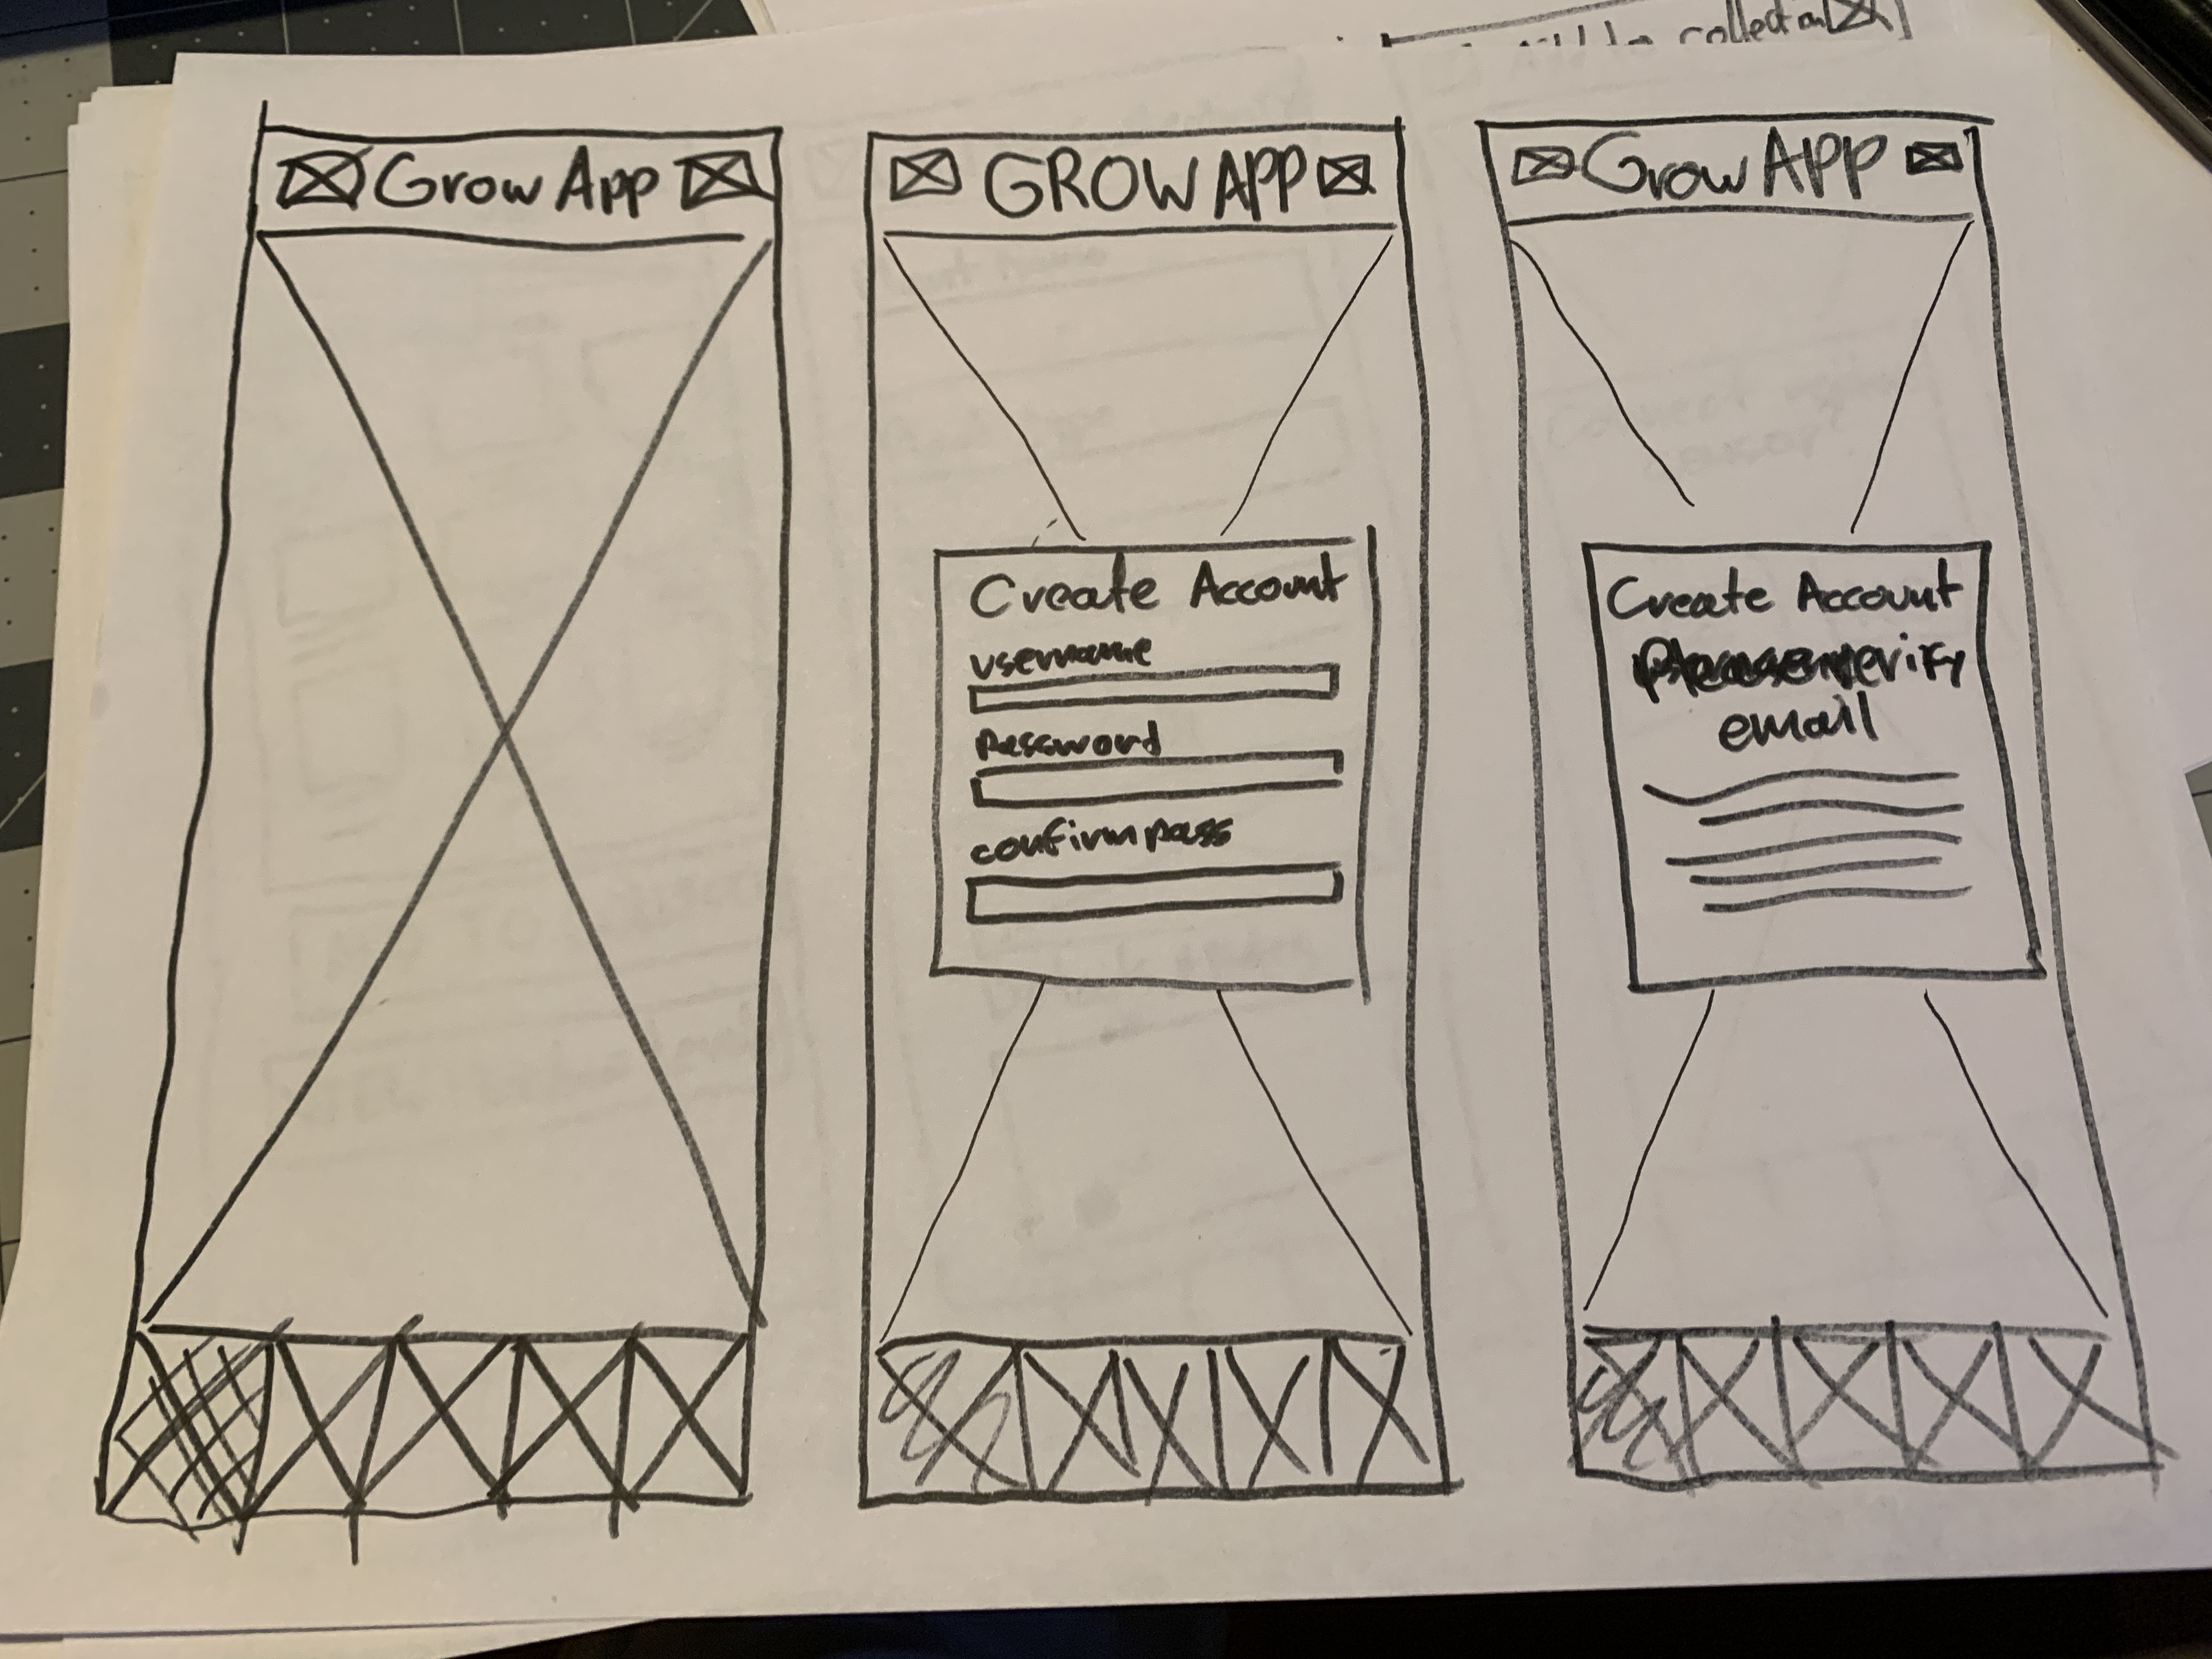 collection
Grow App
GROW APP
Create Account
username
Password
confirm pass
Grow APP
Create Account
verify
email